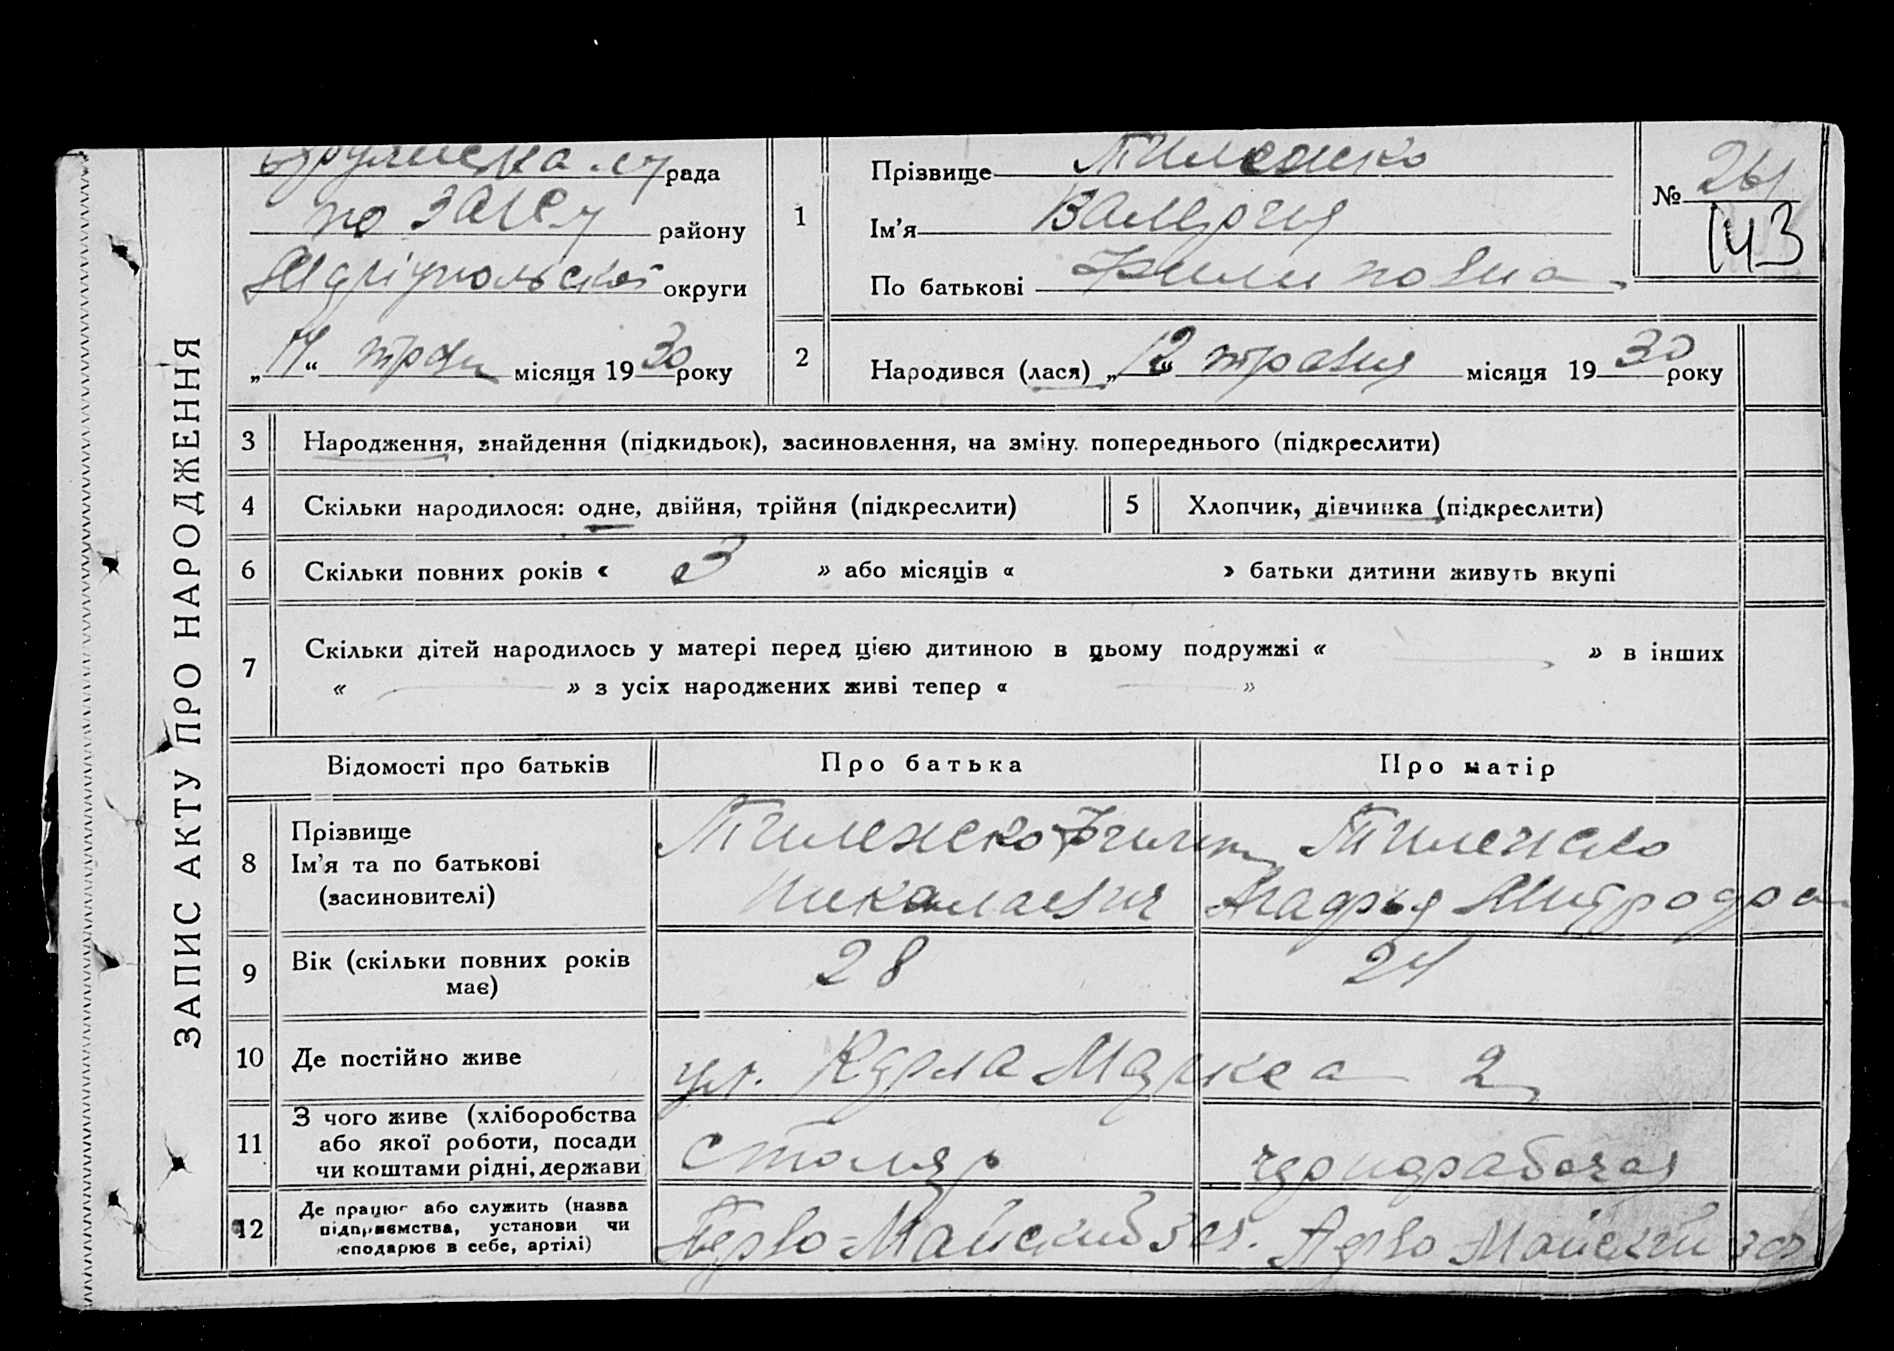 ЗАПИС АКТУ ПРО НАРОДЖЕННЯ
рада
по ЗАГСу району
Маріупольської округи
„14“ травня місяця 1930 року
1
Прізвище Тиленско
Ім’я Валергия
По батькові Филиповна
№ 261
143
2
Народився (лася) „12“ травня місяця 1930 року
3 Народження, знайдення (підкидьок), засиновлення, на зміну попереднього (підкреслити)
4 Скільки народилося: одне, двійня, трійня (підкреслити)
5 Хлопчик, дівчинка (підкреслити)
6 Скільки повних років « 3 » або місяців « » батьки дитини живуть вкупі
7 Скільки дітей народилось у матері перед цією дитиною в цьому подружжі « — » в інших
« — » з усіх народжених живі тепер « — »
Відомості про батьків Про батька Про матір
8 Прізвище
Ім’я та по батькові
(засиновителі)
Тиленско Филип
Николаевич
Тиленско
Агафья
9 Вік (скільки повних років
має)
28 24
10 Де постійно живе ул. Карла Маркса 2
11 З чого живе (хліборобства
або якої роботи, посади
чи коштами рідні, держави
столяр чернорабочая
12 Де працює або служить (назва
підприємства, установи чи
господарює в себе, артілі)
Перво-Майский зав. Перво Майский зав